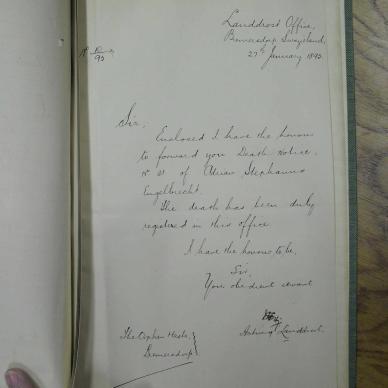 Landdrost Office,
Bremersdorp Swazieland,
27th January 1893.
No
93
Sir,
Enclosed I have the honour
to forward you Death Notice,
No of Adrian Stephanus
Engelbrecht.
The death has been duly
registered in this office
I have the honour to be,
Sir,
Your obedient servant
Acting Landdrost.
The Orphan Master
Bremersdorp